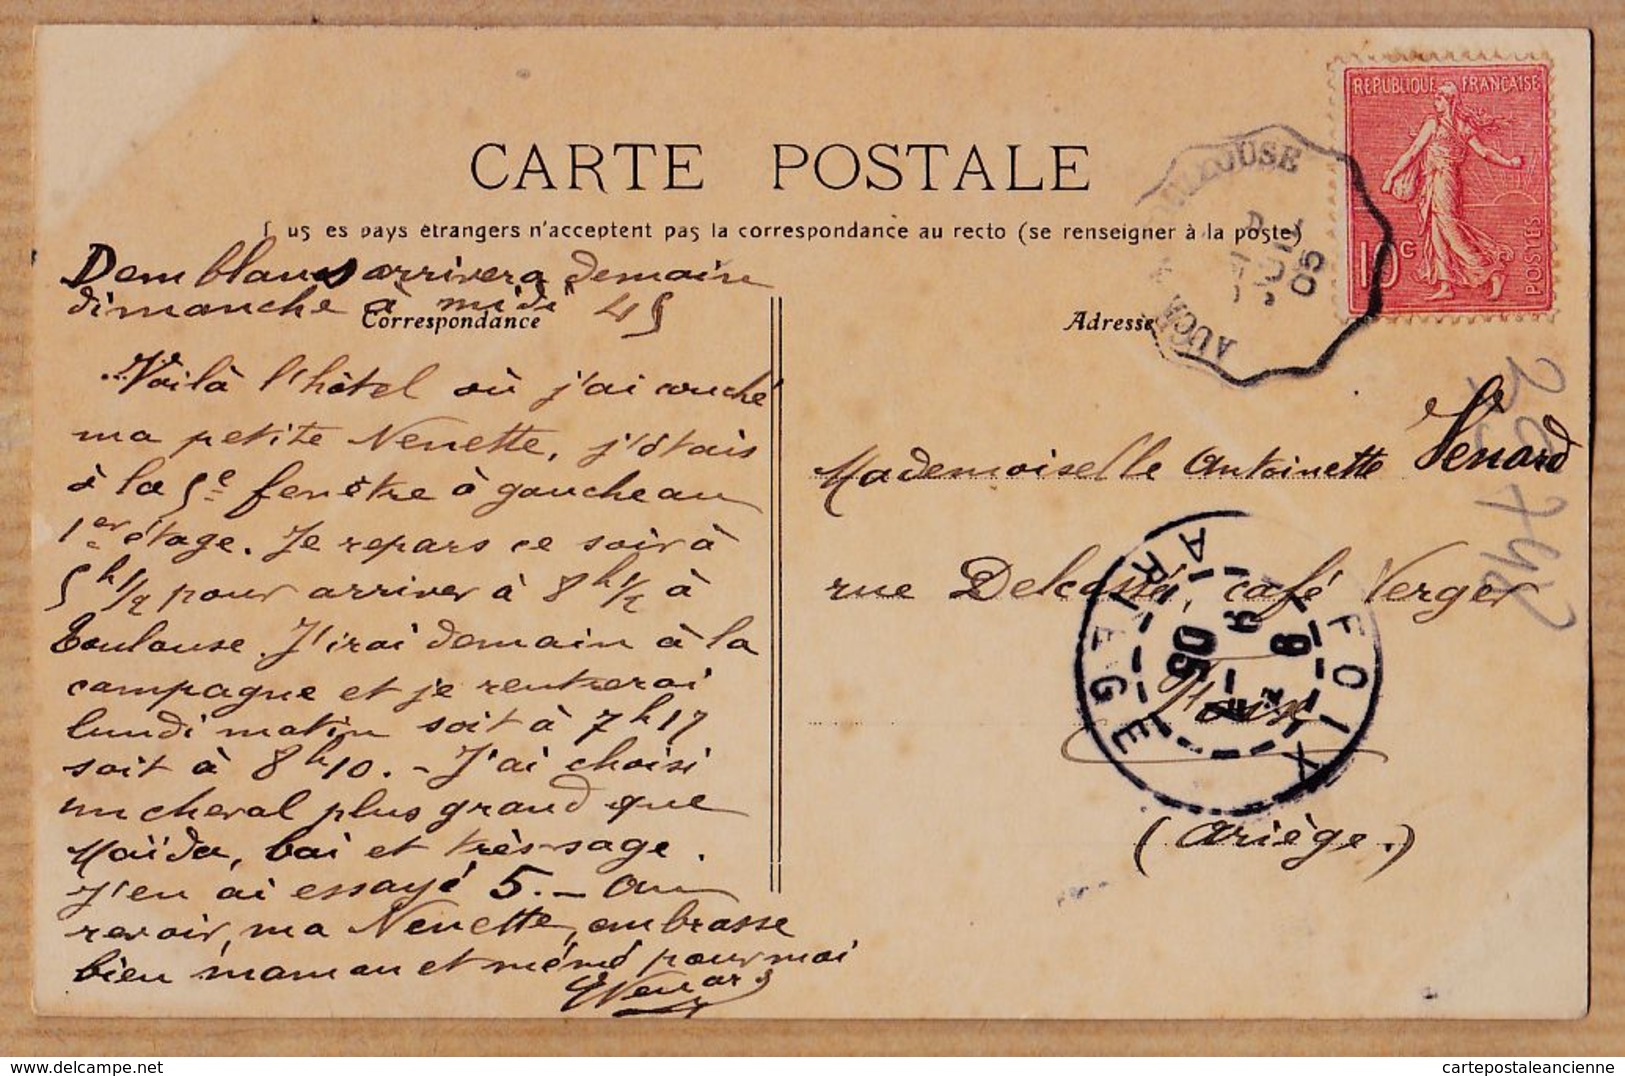 CARTE POSTALE
us es pays étrangers n'acceptent pas la correspondance au recto (se renseigner à la poste)
Demblans arrivera demain
dimanche à midi 45
Correspondance
Voilà l'hôtel où j'ai couché
ma petite Nenette, j'étais
à la 5e fenêtre à gauche au
1er étage. Je repars ce soir à
5h 1/2 pour arriver à 8h 1/2 à
Toulouse. J'irai demain à la
campagne et je rentrerai
lundi matin soit à 7h17
soit à 8h10. - J'ai choisi
un cheval plus grand que
Maïda, bai et très sage.
J'en ai essayé 5. - Au
revoir, ma Nenette, embrasse
bien maman et mémé pour moi
Venard
Adresse
Mademoiselle Antoinette Venard
rue Delcassé, café Verger
Foix
(Ariège.)
REPUBLIQUE FRANÇAISE
10c
POSTES
TOULOUSE
AUCH
05
FOIX
ARIEGE
05
cartepostaleancienne
www.delcampe.net
cartepostaleancienne